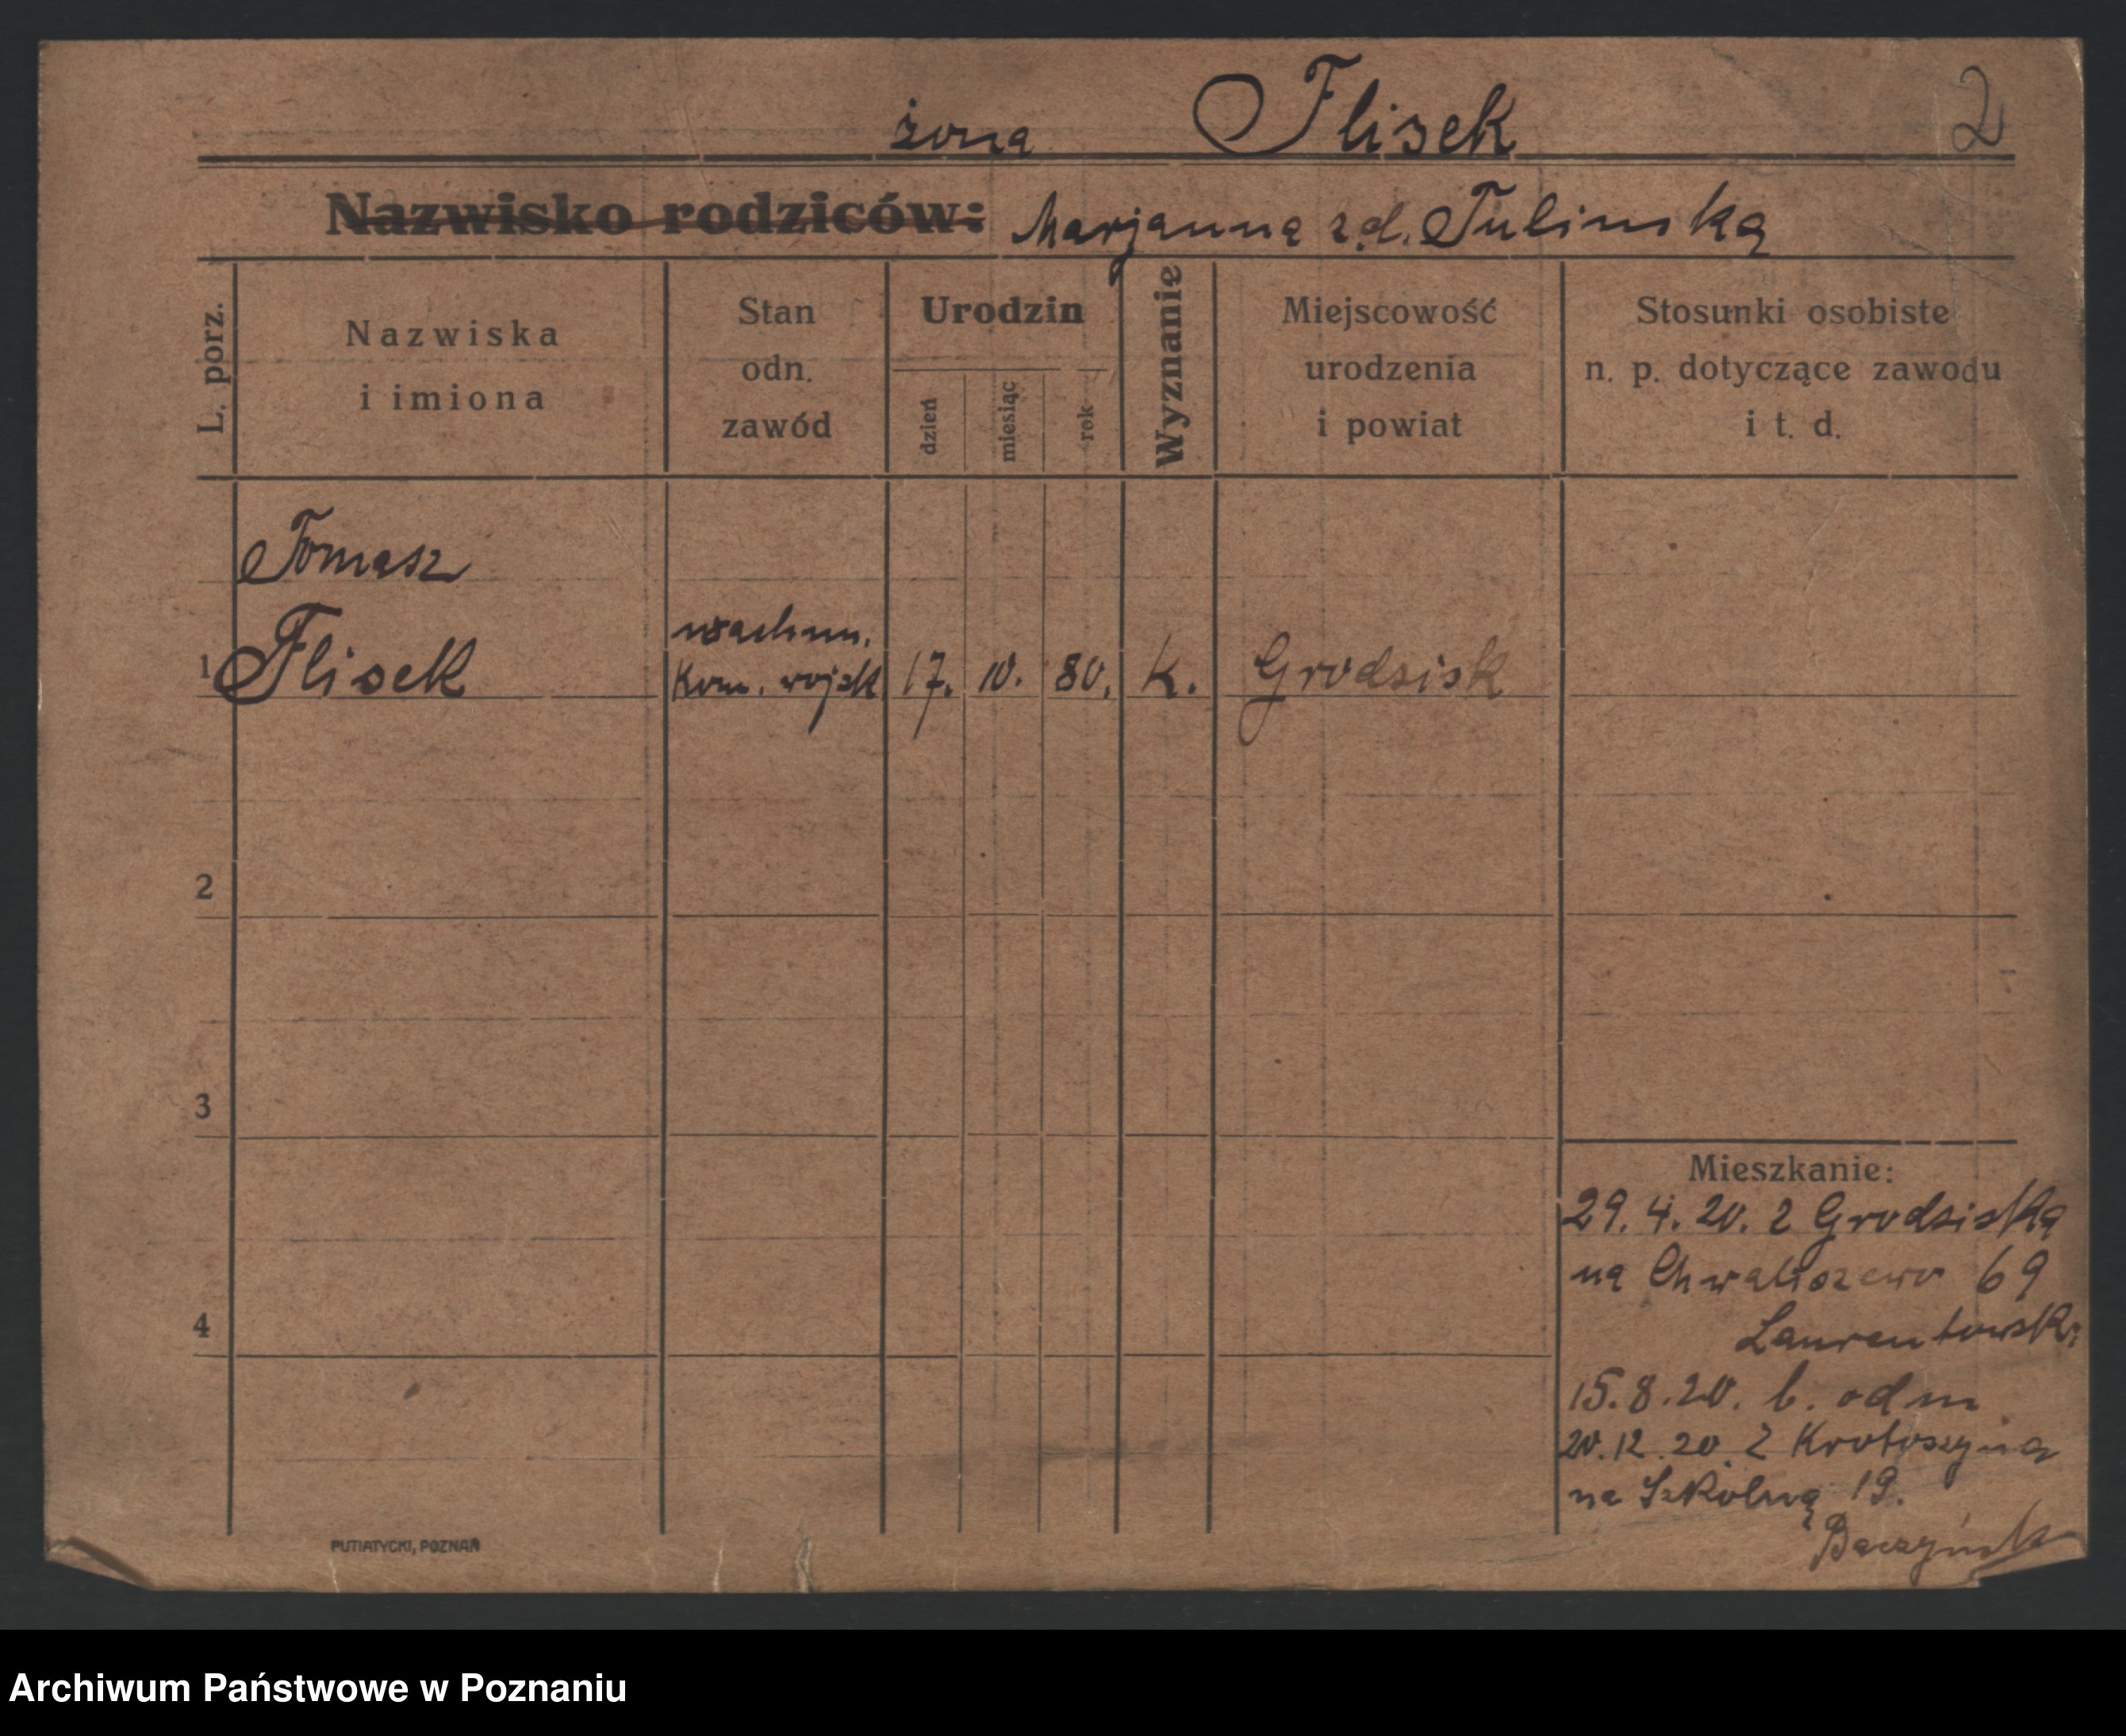 żona Flisek 2
Nazwisko rodziców: Marjanna z d. Tulinska
L. porz.
Nazwiska
i imiona
Stan
odn.
zawód
Urodzin
dzień
miesiąc
rok
Wyznanie
Miejscowość
urodzenia
i powiat
Stosunki osobiste
n. p. dotyczące zawodu
i t. d.
Tomasz
wachm.
1 Flisek Kom. wojsk 17. 10. 80. k. Grodzisk
2
3
4
Mieszkanie:
29. 4. 20. z Grodziska
na Chwaliszewo 69
Laurentowski
15. 8. 20. b. odm
20. 12. 20. z Krotoszyna
na Szkolną 19.
PUTIATYCKI, POZNAŃ
Archiwum Państwowe w Poznaniu